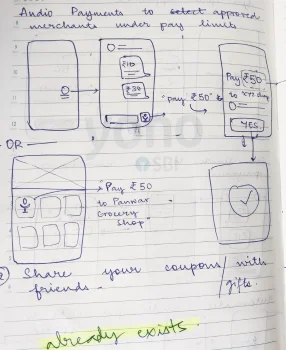 Audio Payments to select approved
merchants under pay limits
₹10
₹30
"pay ₹50"
Pay ₹50
to xyz
YES
OR
"Pay ₹50
to Panwar
Grocery
Shop"
yono
SBI
Share your coupons / with
friends.
gifts.
already exists.